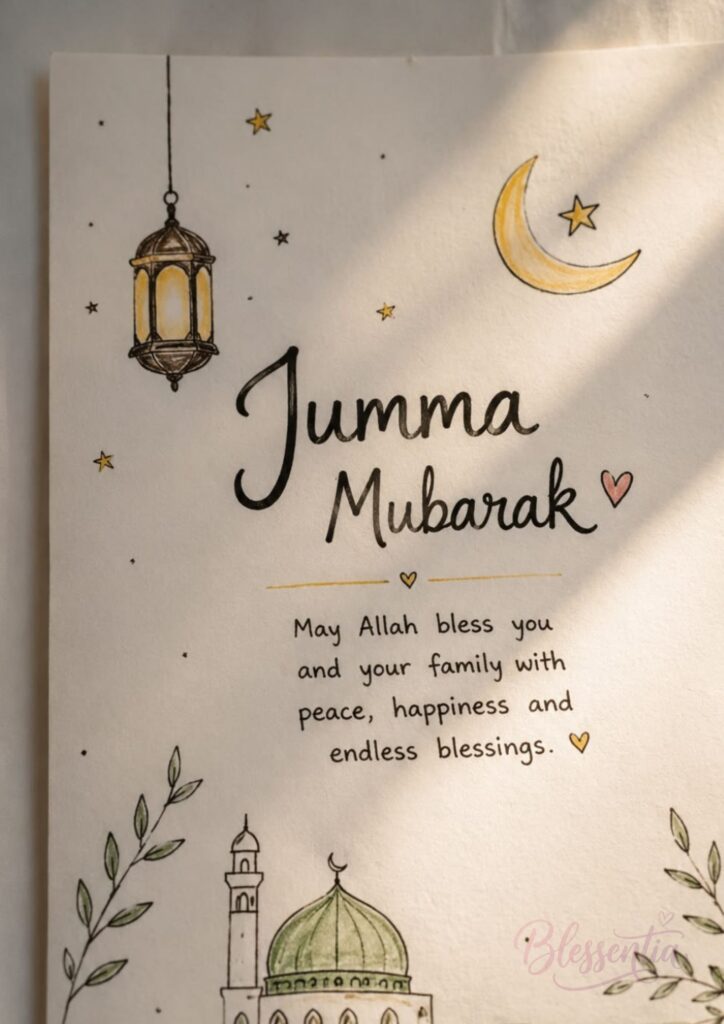 Jumma
Mubarak
May Allah bless you
and your family with
peace, happiness and
endless blessings.
Blessentia